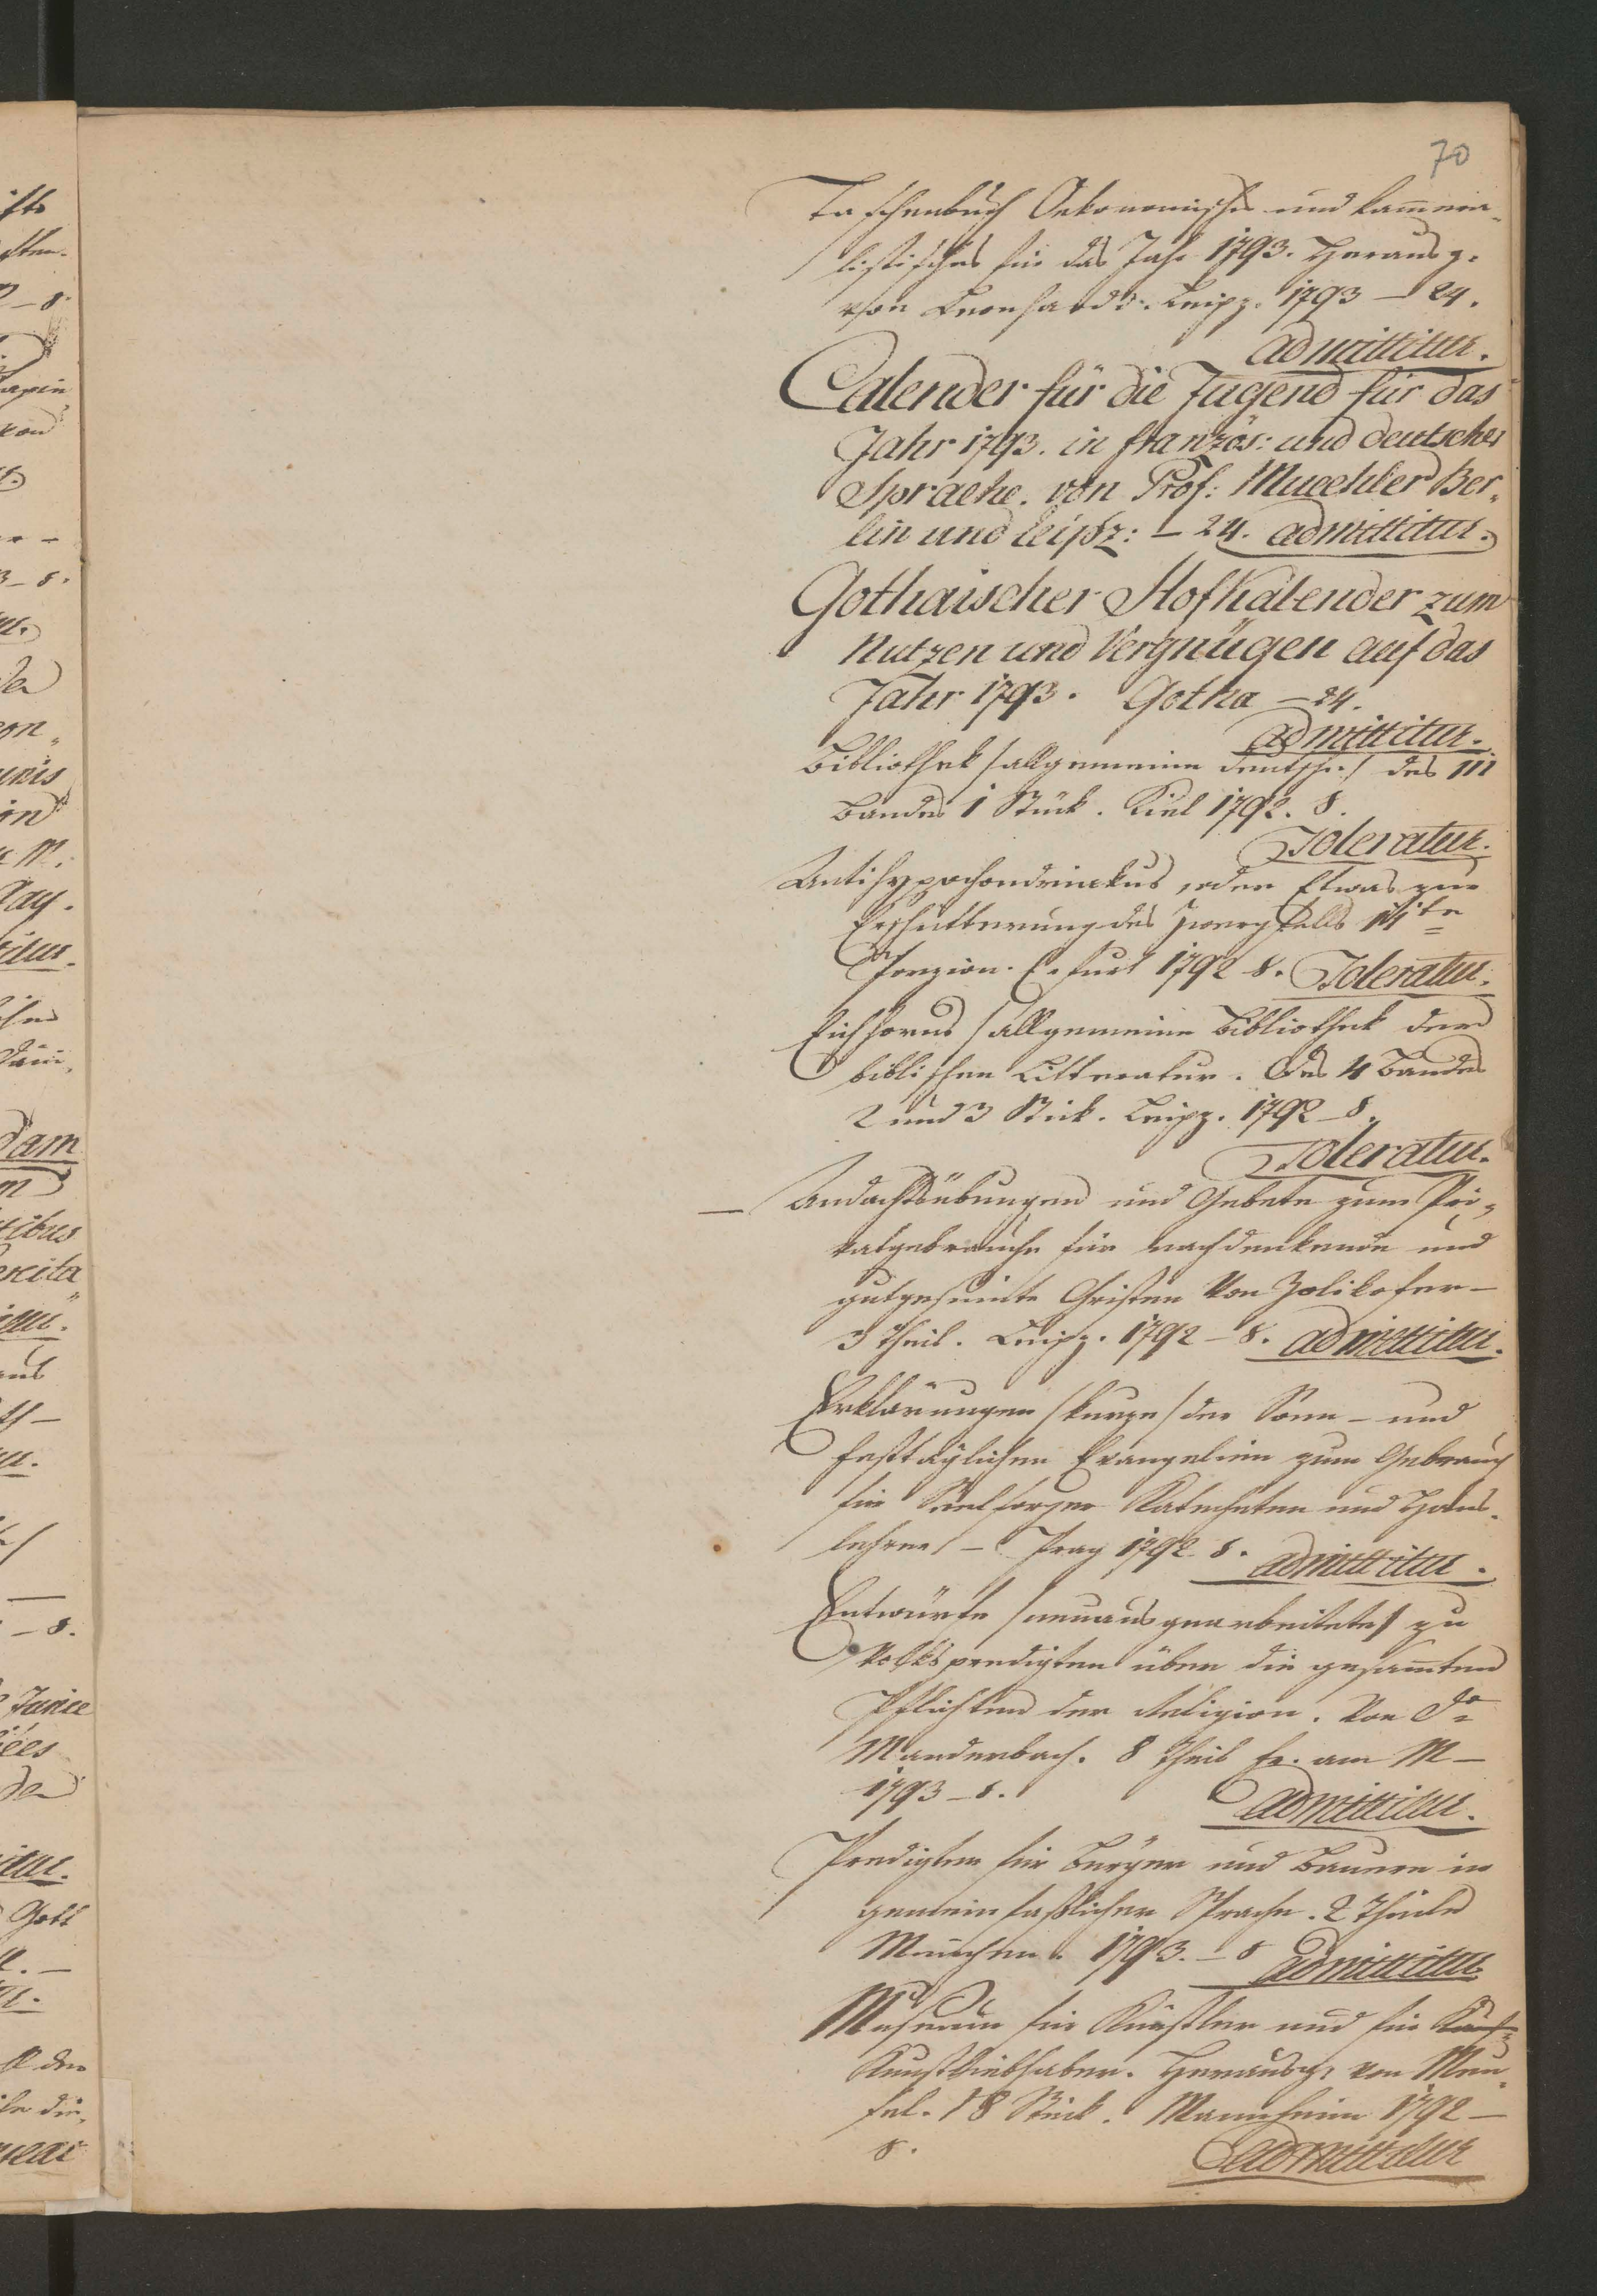 70
Taschenbuch Oekonomisches und kammera-
listisches für das Jahr 1793. Herausg.
von Leonhardi. Leipz. 1793 – 24.
admittitur.
Calender für die Jugend für das
Jahr 1793. in französ: und deutscher
Sprache. von Prof: Muechler Ber-
lin und Leipz: – 24. admittitur.
Gothaischer Hofkalender zum
Nutzen und Vergnügen auf das
Jahr 1793. Gotha – 24.
admittitur.
Bibliothek /allgemeine deutsche/ des III
Bandes 1 Stück. Kiel 1792. 8.
Toleratur.
Antihypochondriakus, oder Etwas zur
Erschütterung des Zwergfells
Porzion. Erfurt 1792 8. Toleratur.
Eichhorns /allgemeine Bibliothek der
biblischen Litteratur. Des 4 Bandes
2 und 3 Stück. Leipz. 1792 – 8.
Toleratur.
– Andachtsübungen und Gebete zum Pri-
vatgebrauche für nachdenkende und
gutgesinnte Christen von Zolikofer –
3 Theil. Leipz. 1792 – 8. admittitur.
Erklärungen /kurze/ der Sonn – und
festtäglichen Evangelien zum Gebrauch
für Seelsorger Katecheten und Haus-
lehrer – Prag 1792. 8. admittitur.
Entwürfe /neuausgearbeitete/ zu
Volkspredigten über die gesam̄ten
Pflichten der Religion. Von
Manderbach. 8 Theil Fr. am M –
1793 – 8. admittitur.
Predigten für Bürger und Bauern in
gemeinfaßlicher Sprache. 2 Theile
München. 1793. – 8 admittitur
Museum für Künstler und für
Kunstliebhaber. Herausg. von Meu-
sel. 18 Stück. Mannheim 1792 –
8. admittitur